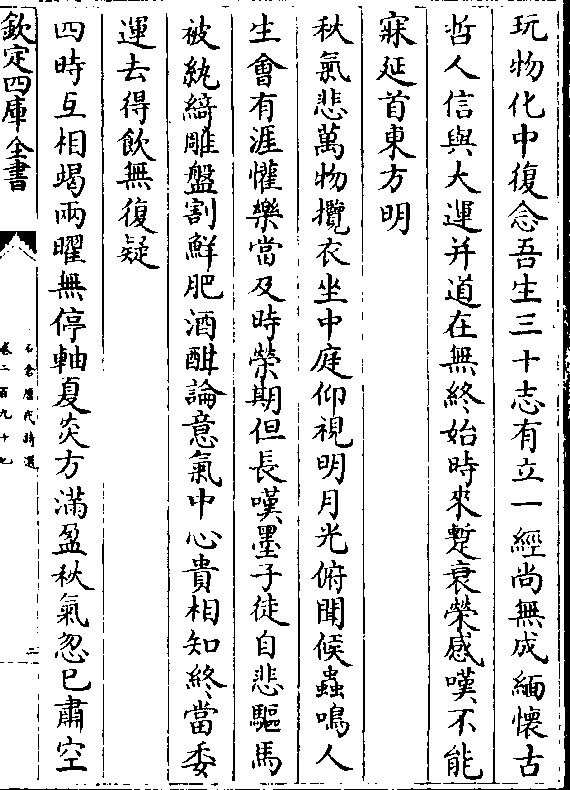 玩物化中復念吾生三十志有立一經尚無成緬懷古
哲人信與大運并道在無終始時來蹔衰榮感嘆不能
寐延首東方明
秋氣悲萬物攬衣坐中庭仰視明月光俯聞候蟲鳴人
生會有涯懽樂當及時榮期但長嘆墨子徒自悲驅馬
被紈綺雕盤割鮮肥酒酣論意氣中心貴相知終當委
運去得飲無復疑
四時互相蝎兩曜無停軸夏炎方滿盈秋氣忽已肅空
欽定四庫全書
石倉歷代詩選
卷二百九十七
二